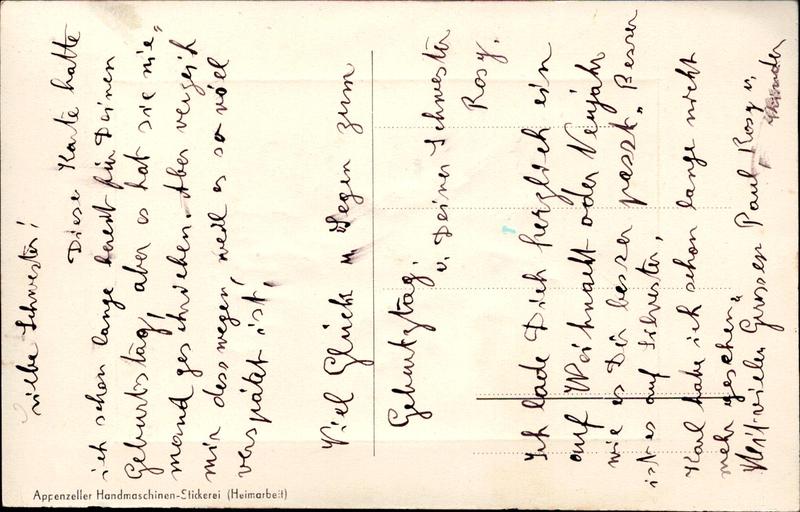 Liebe Schwester!
Diese Karte hatte
ich schon lange bereit für Deinen
Geburtstag, aber es hat sie nie-
mand geschrieben. Aber verzeih
mir desswegen, weil es so viel
verspätet ist,
Viel Glück u Segen zum
Geburtztag.
v. Deiner Schwester
Rosy.
Ich lade Dich herzlich ein
auf Weihnacht oder Neujahr
wie es Dir besser passt, Besser
ist es auf Silvester,
Karl habe ich schon lange nicht
mehr gesehen,
Mit vielen Grüssen Paul, Rosy u,
Kinder
Appenzeller Handmaschinen-Stickerei (Heimarbeit)